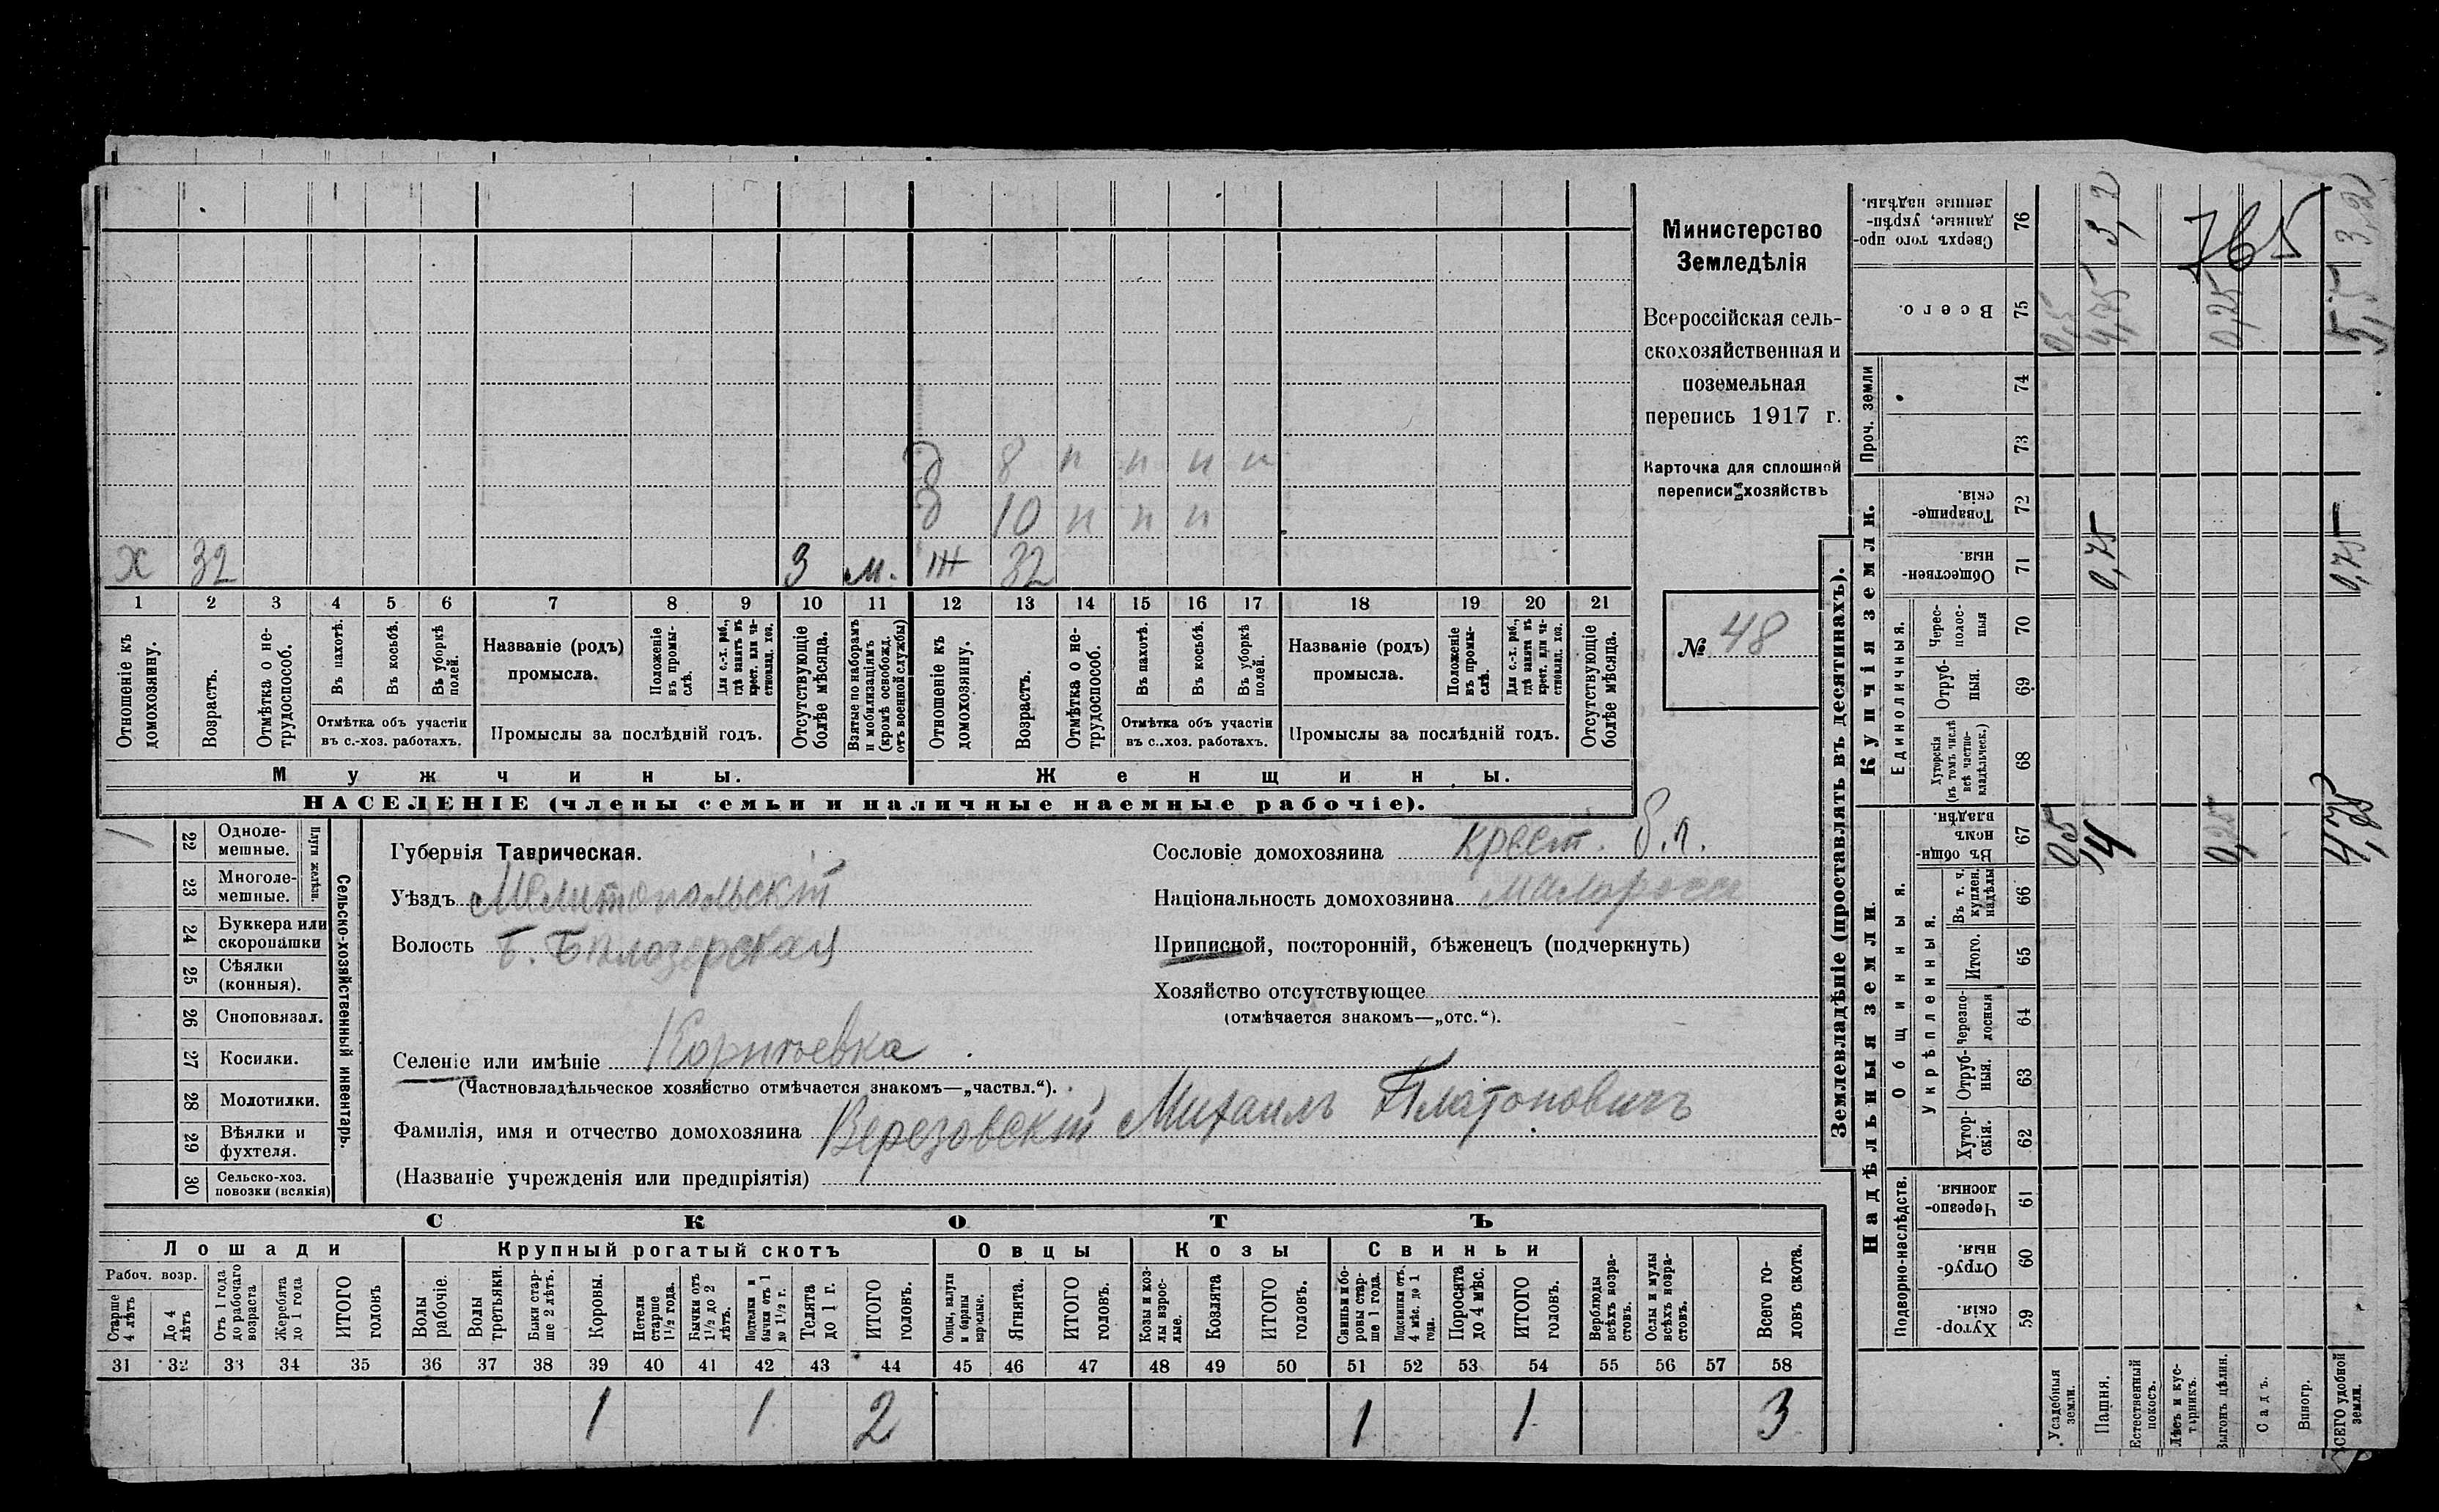 Министерство
Земледѣлія
Всероссійская сель-
скохозяйственная и
поземельная
перепись 1917 г.
Карточка для сплошной
переписи хозяйствъ
№ 48
д 8 п п п п
д 10 п п п
х 32 3 м. ж 32
1 2 3 4 5 6 7 8 9 10 11 12 13 14 15 16 17 18 19 20 21
Отношеніе къ домохозяину.
Возрастъ.
Отмѣтка о не-трудоспособ.
Въ пахотѣ.
Въ косьбѣ.
Въ уборкѣ полей.
Отмѣтка объ участіи
въ с.-хоз. работахъ.
Названіе (родъ)
промысла.
Положеніе въ промы-слѣ.
Для с.-х. раб., гдѣ занятъ въ крест. или ча-стновлад. хоз.
Промыслы за послѣдній годъ.
Отсутствующіе болѣе мѣсяца.
Взятые по наборамъ и мобилизаціямъ (кромѣ освобожд. отъ военной службы)
Отношеніе къ домохозяину.
Возрастъ.
Отмѣтка о не-трудоспособ.
Въ пахотѣ.
Въ косьбѣ.
Въ уборкѣ полей.
Отмѣтка объ участіи
въ с.-хоз. работахъ.
Названіе (родъ)
промысла.
Положеніе въ промы-слѣ.
Для с.-х. раб., гдѣ занята въ крест. или ча-стновлад. хоз.
Промыслы за послѣдній годъ.
Отсутствующіе болѣе мѣсяца.
Мужчины.
Женщины.
НАСЕЛЕНІЕ (члены семьи и наличные наемные рабочіе).
22 Одноле-мешные.
23 Многоле-мешные.
Плуги желѣзн.
24 Буккера или скоропашки
25 Сѣялки (конныя).
26 Сноповязал.
27 Косилки.
28 Молотилки.
29 Вѣялки и фухтеля.
30 Сельско-хоз. повозки (всякія)
Сельско-хозяйственный инвентарь.
Губернія Таврическая.
Уѣздъ Мелитопольскій
Волость Б. Бѣлозерская
Селеніе или имѣніе
(Частновладѣльческое хозяйство отмѣчается знакомъ—„частвл.“).
Фамилія, имя и отчество домохозяина Верезовскій Михаилъ Платоновичъ
(Названіе учрежденія или предпріятія)
Сословіе домохозяина крест. б.п.
Національность домохозяина малоросс
Приписной, посторонній, бѣженецъ (подчеркнуть)
Хозяйство отсутствующее
(отмѣчается знакомъ—„отс.“).
СКОТЪ
Лошади
Крупный рогатый скотъ
Овцы
Козы
Свиньи
Рабоч. возр.
Старше 4 лѣтъ
До 4 лѣтъ
Отъ 1 года до рабочаго возраста
Жеребята до 1 года
ИТОГО головъ
Волы рабочіе.
Волы третьяки.
Быки стар-ше 2 лѣтъ.
Коровы.
Нетели старше 1½ года.
Бычки отъ 1½ до 2 лѣтъ.
Подтелки и бычки отъ 1 до 1½ г.
Телята до 1 г.
ИТОГО головъ.
Овцы, валухи и бараны взрослые.
Ягнята.
ИТОГО головъ.
Козы и коз-лы взрос-лые.
Козлята
ИТОГО головъ.
Свиньи и бо-ровы стар-ше 1 года.
Подсвинки отъ 4 мѣс. до 1 года.
Поросята до 4 мѣс.
ИТОГО головъ.
Верблюды всѣхъ возра-стовъ.
Ослы и мулы всѣхъ возра-стовъ.
Всего го-ловъ скота.
31 32 33 34 35 36 37 38 39 40 41 42 43 44 45 46 47 48 49 50 51 52 53 54 55 56 57 58
1 1 2 1 1 3
Землевладѣніе (проставлять въ десятинахъ).
Надѣльныя земли.
Купчія земли.
Проч. земли
Подворно-наслѣдств.
Общинныя.
Укрѣпленныя.
Единоличныя.
Хутор-скія. 59
Отруб-ныя. 60
Черезпо-лосныя. 61
Хутор-скія. 62
Отруб-ныя. 63
Черезпо-лосныя 64
Итого. 65
Въ т. ч. куплен. надѣлы 66
Въ общин-номъ владѣн. 67
Хуторскія (въ томъ числѣ всѣ частно-владѣльческ.) 68
Отруб-ныя. 69
Черес-полос-ныя 70
Обществен-ныя. 71
Товарище-скія. 72
73
74
Всего. 75
Сверхъ того про-данные, укрѣп-ленные надѣлы. 76
Усадебныя земли. 0,5 0,5
Пашня. 4 0,75 4,75 3,2
Естественный покосъ.
Лѣсъ и кус-тарникъ.
Выгонъ цѣлин. 0,25 0,25
Садъ.
Виногр.
ВСЕГО удобной земли. 4,75 0,75 5,5 3,2
765